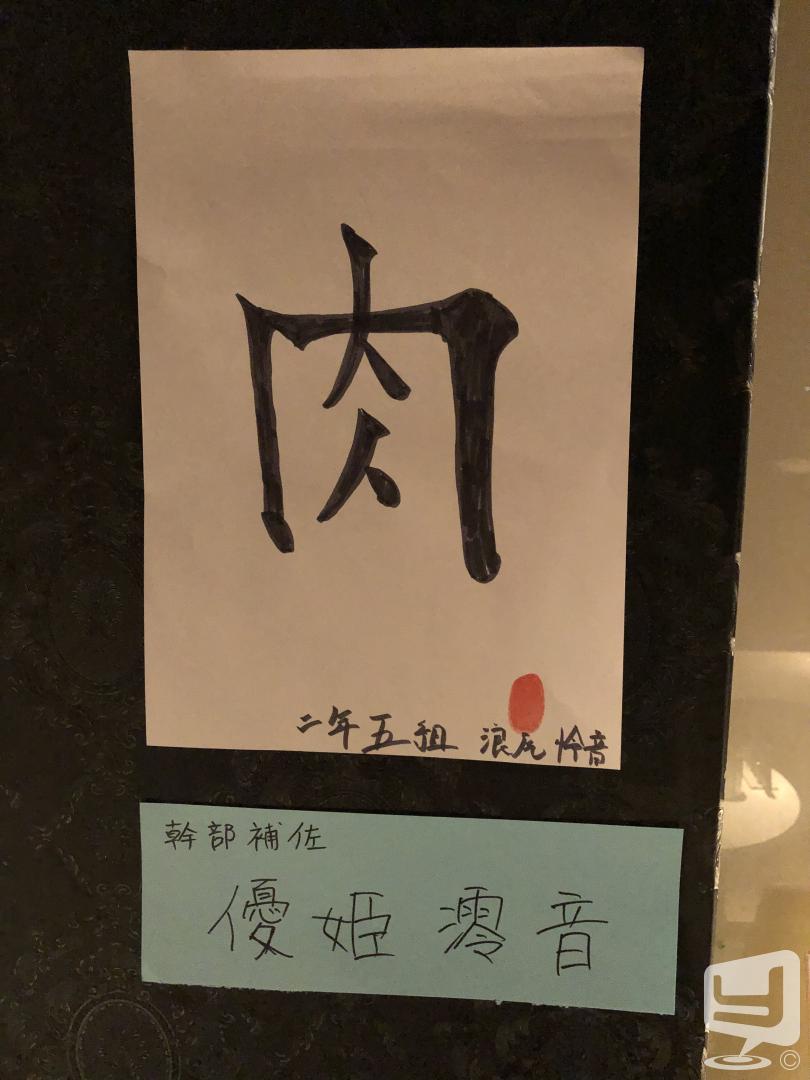 肉
二年五租 浪虎怜音
幹部補佐
優姫澪音